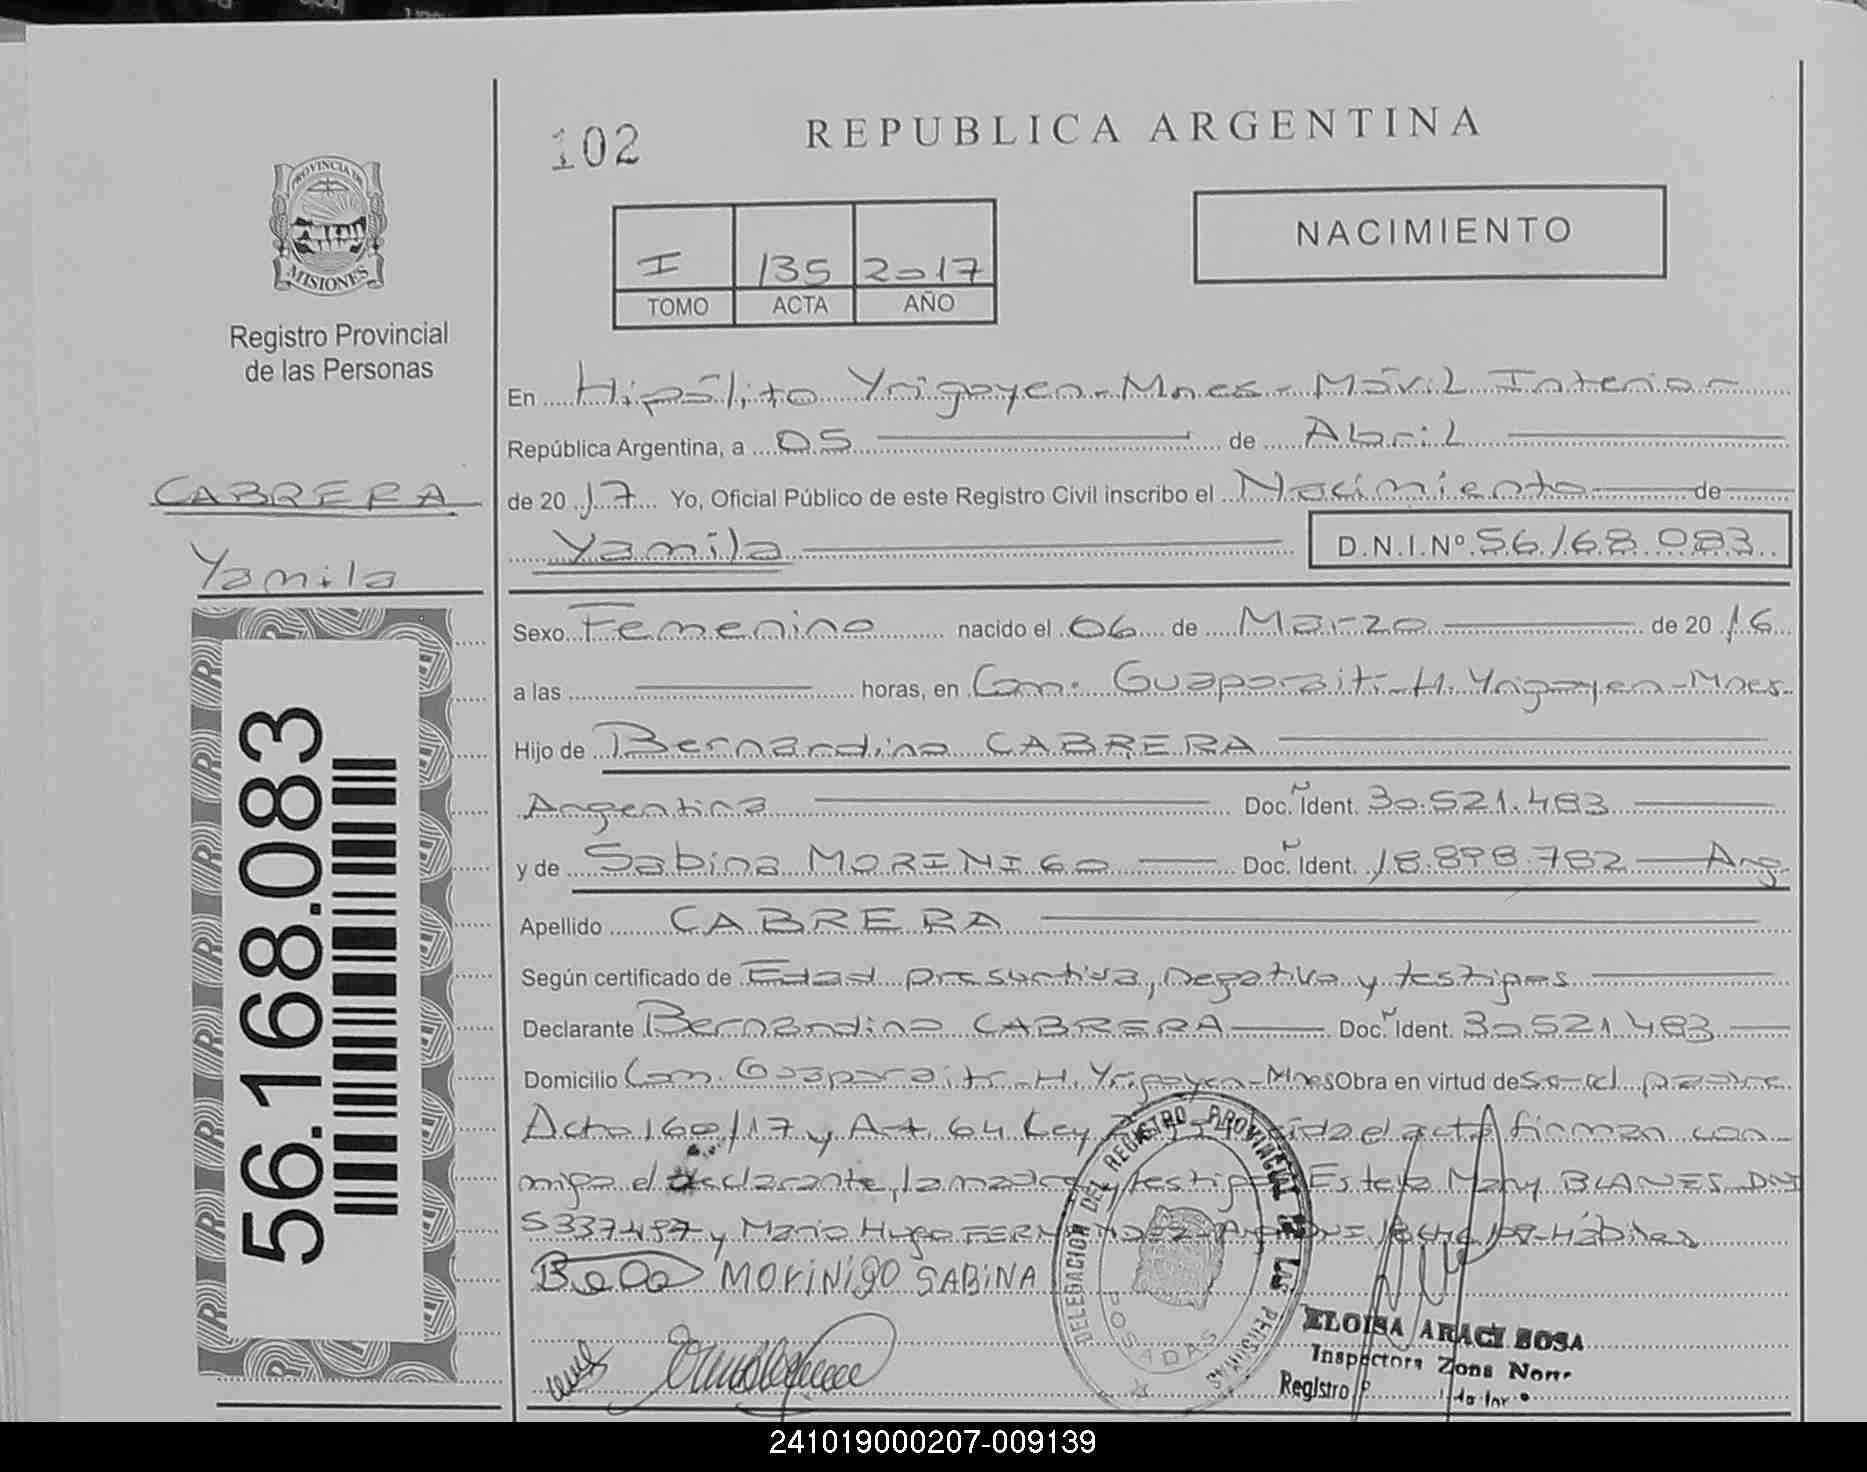 102
REPUBLICA ARGENTINA
PROVINCIA DE
MISIONES
Registro Provincial
de las Personas
I 135 2017
TOMO ACTA AÑO
NACIMIENTO
En Hipólito Yrigoyen - Mnes - Móvil Interior
República Argentina, a 05 de Abril
CABRERA
de 20 17 Yo, Oficial Público de este Registro Civil inscribo el Nacimiento de
Yamila
Yamila D.N.I.Nº 56168.083
56.168.083
Sexo Femenino nacido el 06 de Marzo de 20 16
a las horas, en Com. Guaporaiti - H. Yrigoyen - Mnes.
Hijo de Bernardino CABRERA
Argentina Doc. Ident. 30.521.483
y de Sabina MORINIGO Doc. Ident. 18.898.782 Arg
Apellido CABRERA
Según certificado de Edad presuntiva, negativa y testigos
Declarante Bernardino CABRERA Doc. Ident. 30.521.483
Domicilio Com. Guaporaiti - H. Yrigoyen - Mnes Obra en virtud de ser el padre
Acto 160/17 y Art. 64 Ley el acta firman con
migo el declarante, la madre y testigos Mary BLANES DNI
5337487 y Mario Hugo Hábiles
MORINIGO SABINA
DELEGACION DEL REGISTRO PROVINCIAL DE LAS PERSONAS
POSADAS
ELOISA ARACI SOSA
Inspectora Zona Norte
Registro
241019000207-009139